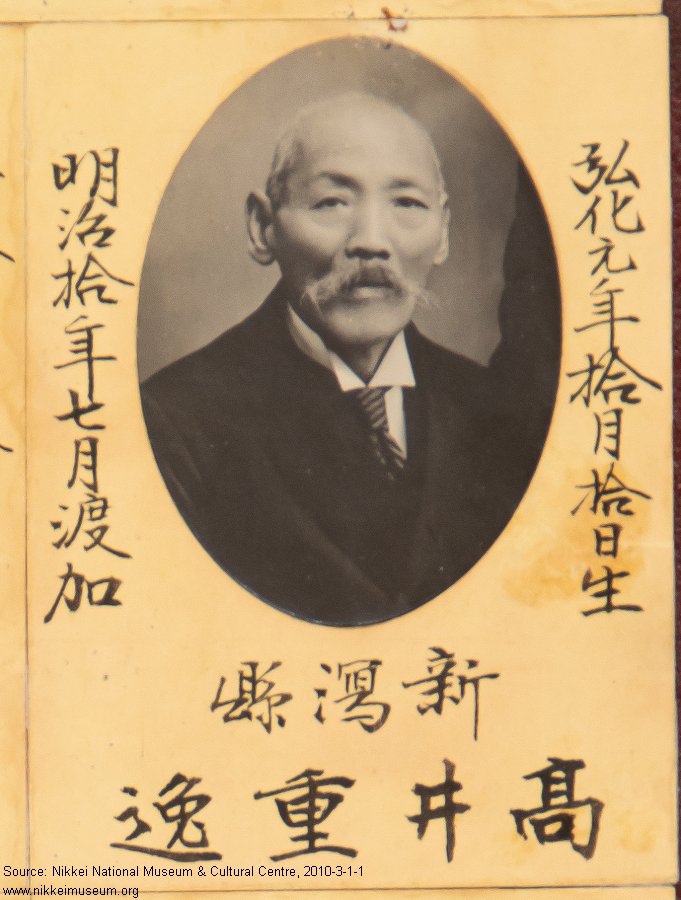 弘化元年拾月拾日生
明治拾年七月渡加
新潟縣
髙井重逸
Source: Nikkei National Museum & Cultural Centre, 2010-3-1-1
www.nikkeimuseum.org